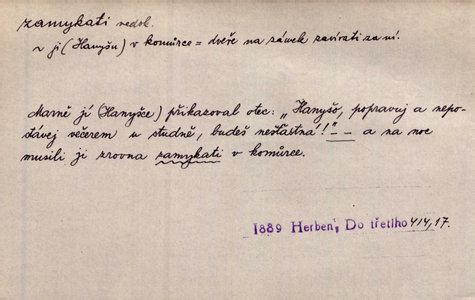 zamykati nedok.
~ ji (Hanyšu) v komůrce = dveře na zámek zavírati za ní.
Marně jí (Hanyšce) přikazoval otec: „Hanyšo, popravuj a nepo-
stávej večerem u studně, budeš nešťastná!" – – a na noc
musili ji zrovna zamykati v komůrce.
1889 Herben, Do třetího 414,17.